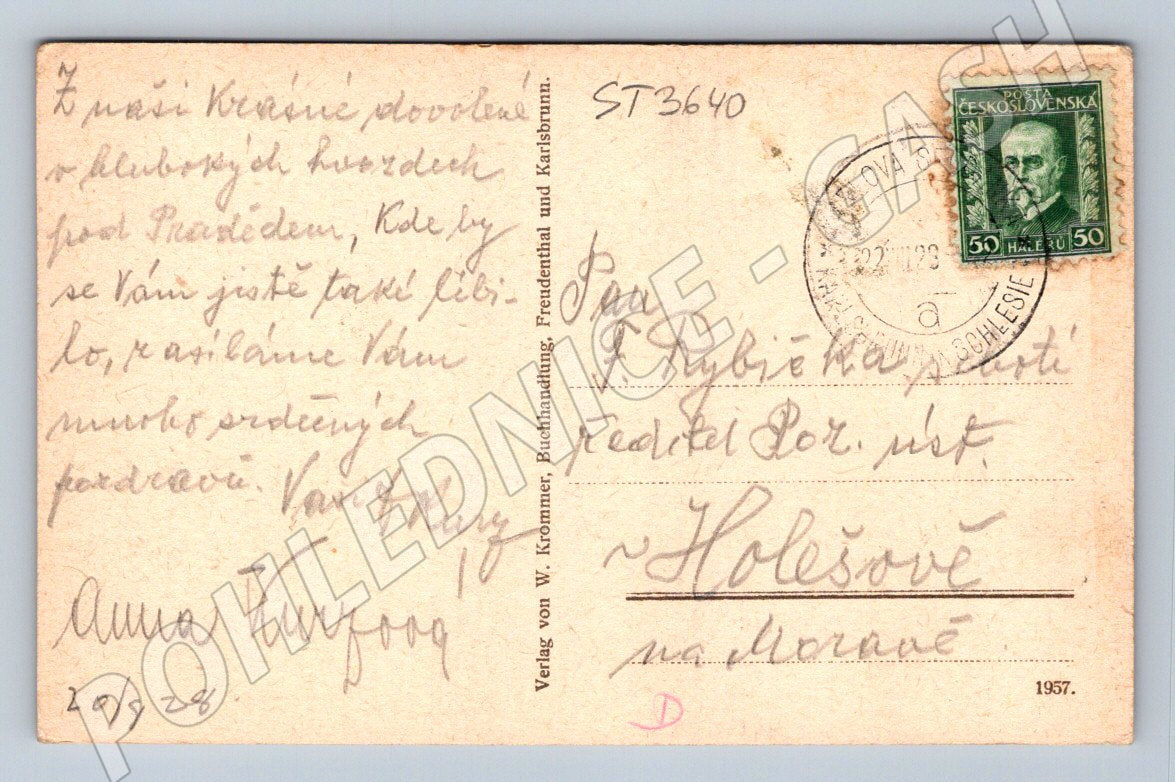 Z naši Krásné dovolené
v hlubokých hvozdech
pod Pradědem, Kde by
se Vám jistě také líbi-
lo, zasíláme Vám
mnoho srdečných
pozdravů.
Anna
28
Verlag von W. Krommer, Buchhandlung, Freudenthal und Karlsbrunn.
ST3640
POŠTA
ČESKOSLOVENSKA
50 HALÉŘŮ 50
SCHLESIE
a
Pan
F. Rybička
ředitel Poz. úst.
v Holešově
na Moravě
1957.
D
POHLEDNICE - CASH